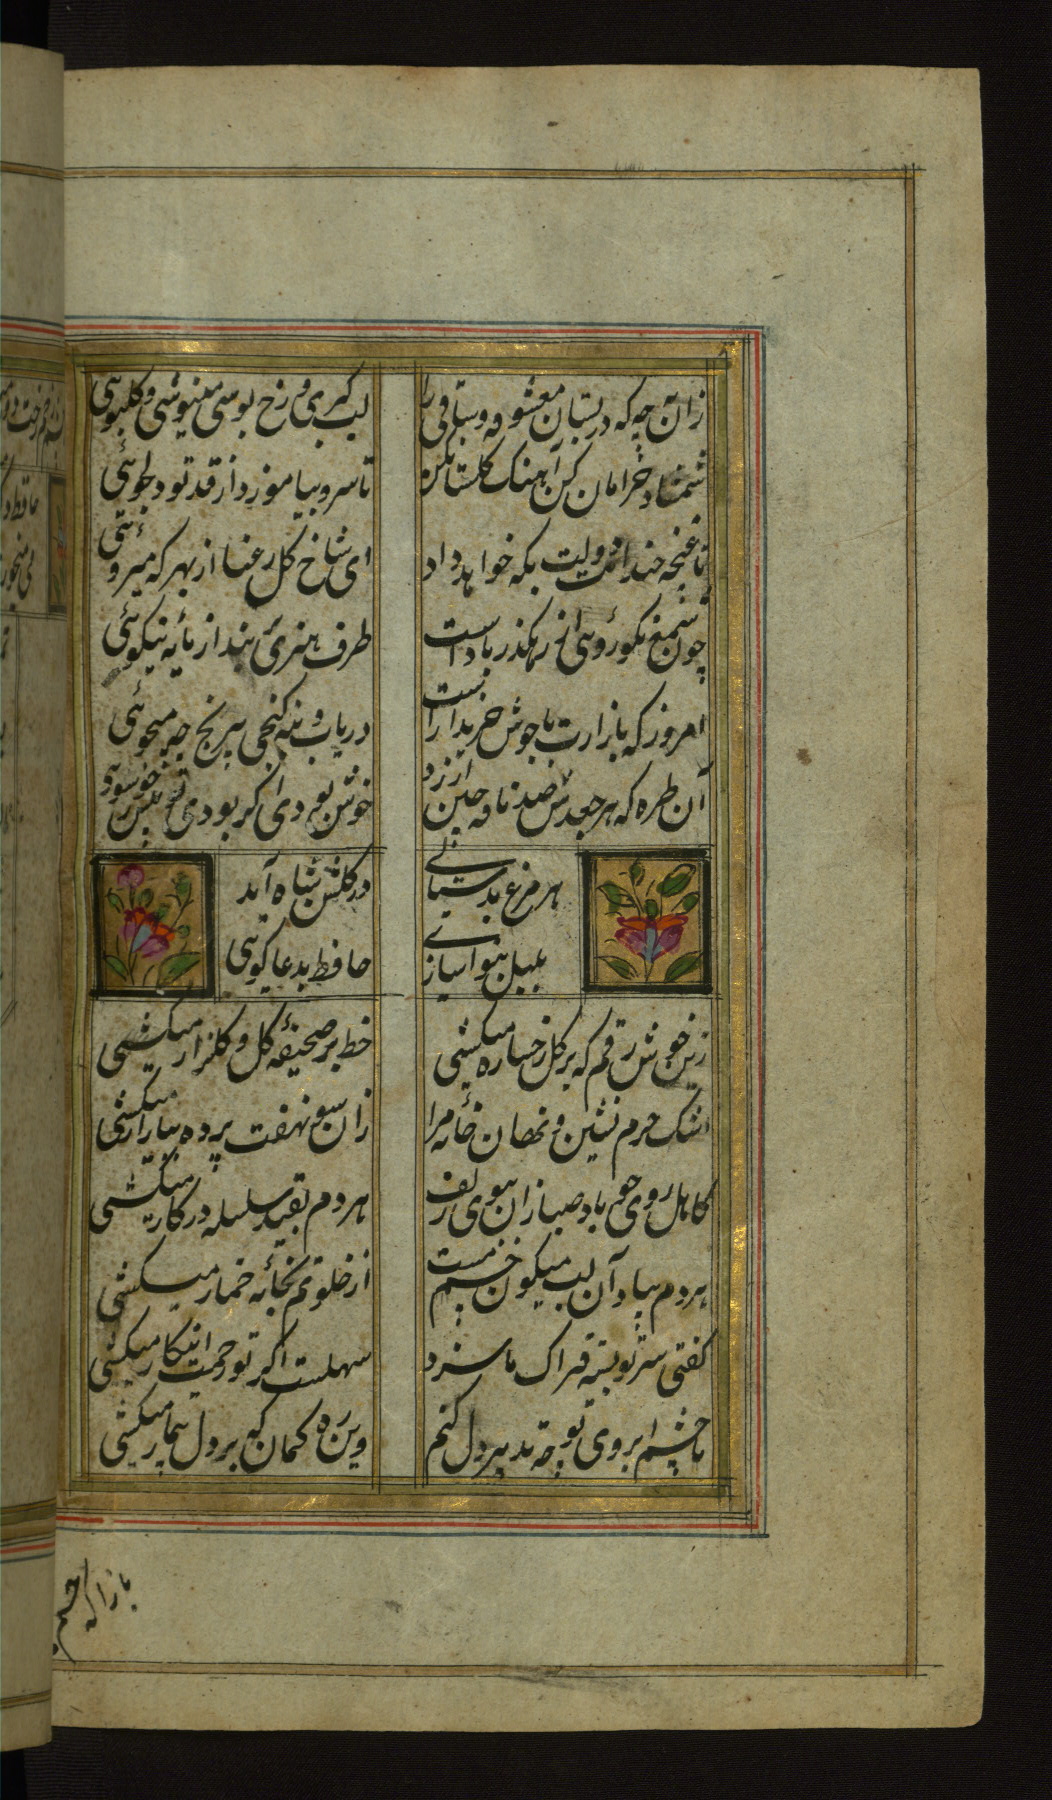 زان چه که در بستان معشوقه و ساقی را لب گیری و رخ بوسی مینوشی و گلبوئی
شمشاد خرامان کن آهنگ گلستان کن تا سرو بیاموزد از قد تو دلجوئی
تا غنچه خندانت دولت بکه خواهد داد ای شاخ گل رعنا از بهر که میروئی
چون شمع نکوروئی در رهگذر باد است طرف هنری بند از مایه نیکوئی
امروز که بازارت با جوش خریدارست دریاب و بنه گنجی بی رنج چه میجوئی
آن طره که هر جعدش صد نافه چین ارزد خوش بودی اگر بودی بوئیش ز خوشخوئی
هر مرغ بدستانی در گلشن شاه آید
بلبل بنوا سازی حافظ بدعا گوئی
زین خوش رقم که بر گل رخساره میکشی خط بر صحیفه گل و گلزار میکشی
اشک حرم نشین و نهان خانه مرا زان سوی نهفت پرده ببازار میکشی
کاهل روی چو باد صبا را ببوی زلف هر دم بقید سلسله در کار میکشی
هر دم بیاد آن لب میگون و چشم مست از خلوتم بخانه خمار میکشی
گفتی سر تو بسته فتراک ما سزد سهلست اگر تو زحمت این کار میکشی
با چشم ابروی تو چه تدبیر دل کنم وین زه کمان که بر دل بیمار میکشی
بازا که چشم